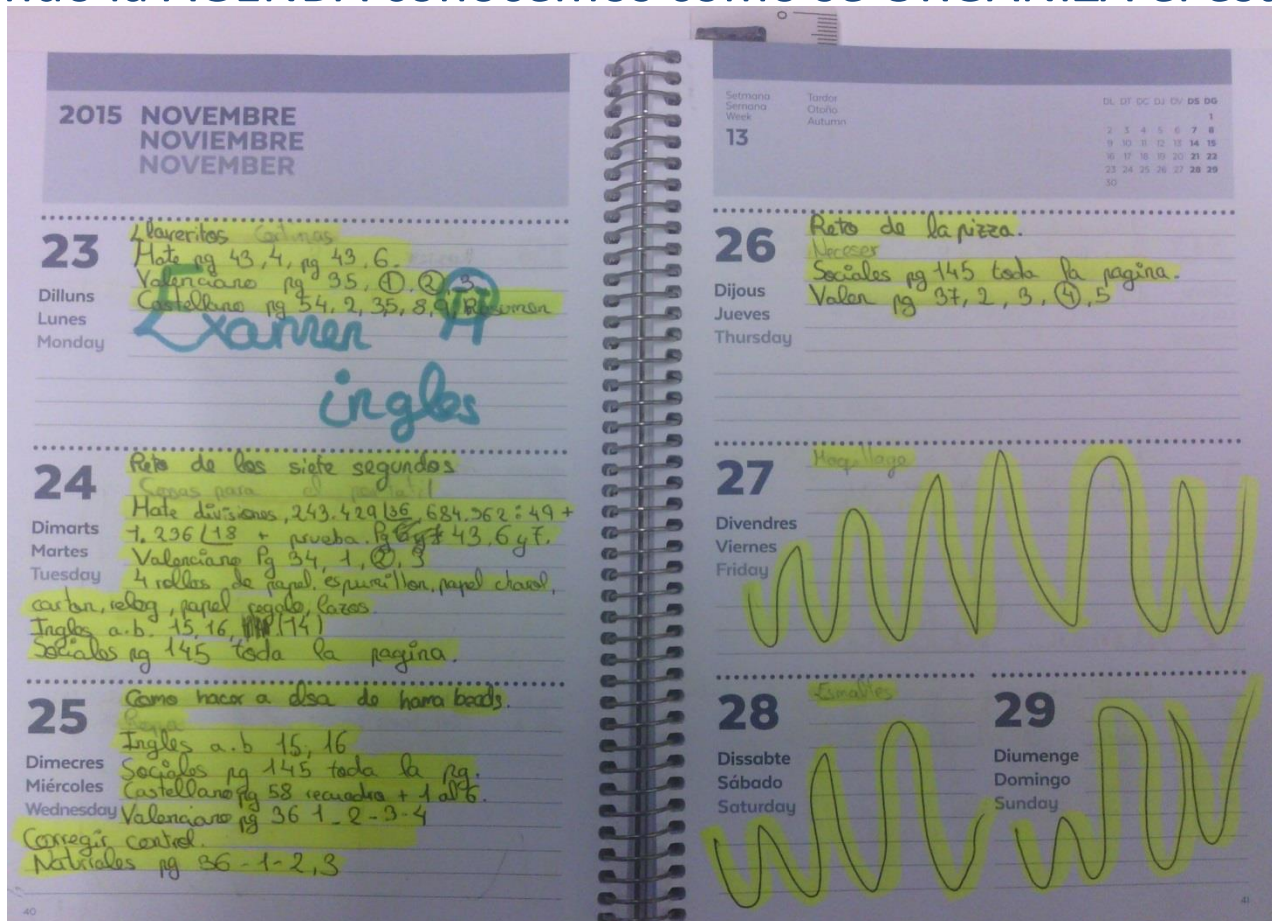 la AGENDA conocemos como se ORGANIZA el
2015 NOVEMBRE
NOVIEMBRE
NOVEMBER
23
Dilluns
Lunes
Monday
Llaveritos Cortinas
Mate pg 43, 4, pg 43, 6.
Valenciano pg 35, ①, ②, 3
Castellano pg 54, 2, 35, 8, 9, Resumen
Examen
ingles
24
Dimarts
Martes
Tuesday
Reto de los siete segundos
Cosas para el
Mate divisiones, 243.429 36, 684.962 : 49 +
1.296 18 + prueba. Pg 43, 6 y 7.
Valenciano Pg 34, 1, ②, 3
4 rollos de papel, espumillon, papel charol,
carton, relog, papel regalo, lazos.
Ingles a.b. 15, 16, (14)
Sociales pg 145 toda la pagina.
25
Dimecres
Miércoles
Wednesday
Como hacer a elsa de hama beads.
Ropa
Ingles a.b 15, 16
Sociales pg 145 toda la pg.
Castellano pg 58 recuadro + 1 al 6.
Valenciano pg 36 1-2-3-4
Corregir control.
Naturales pg 36-1-2,3
40
Setmana
Semana
Week
13
Tardor
Otoño
Autumn
DL DT DC DJ DV DS DG
1
2 3 4 5 6 7 8
9 10 11 12 13 14 15
16 17 18 19 20 21 22
23 24 25 26 27 28 29
30
26
Dijous
Jueves
Thursday
Reto de la pizza.
Neceser
Sociales pg 145 toda la pagina.
Valen pg 37, 2, 3, ④, 5
27
Divendres
Viernes
Friday
Maquillage
28
Dissabte
Sábado
Saturday
Esmaltes
29
Diumenge
Domingo
Sunday
41